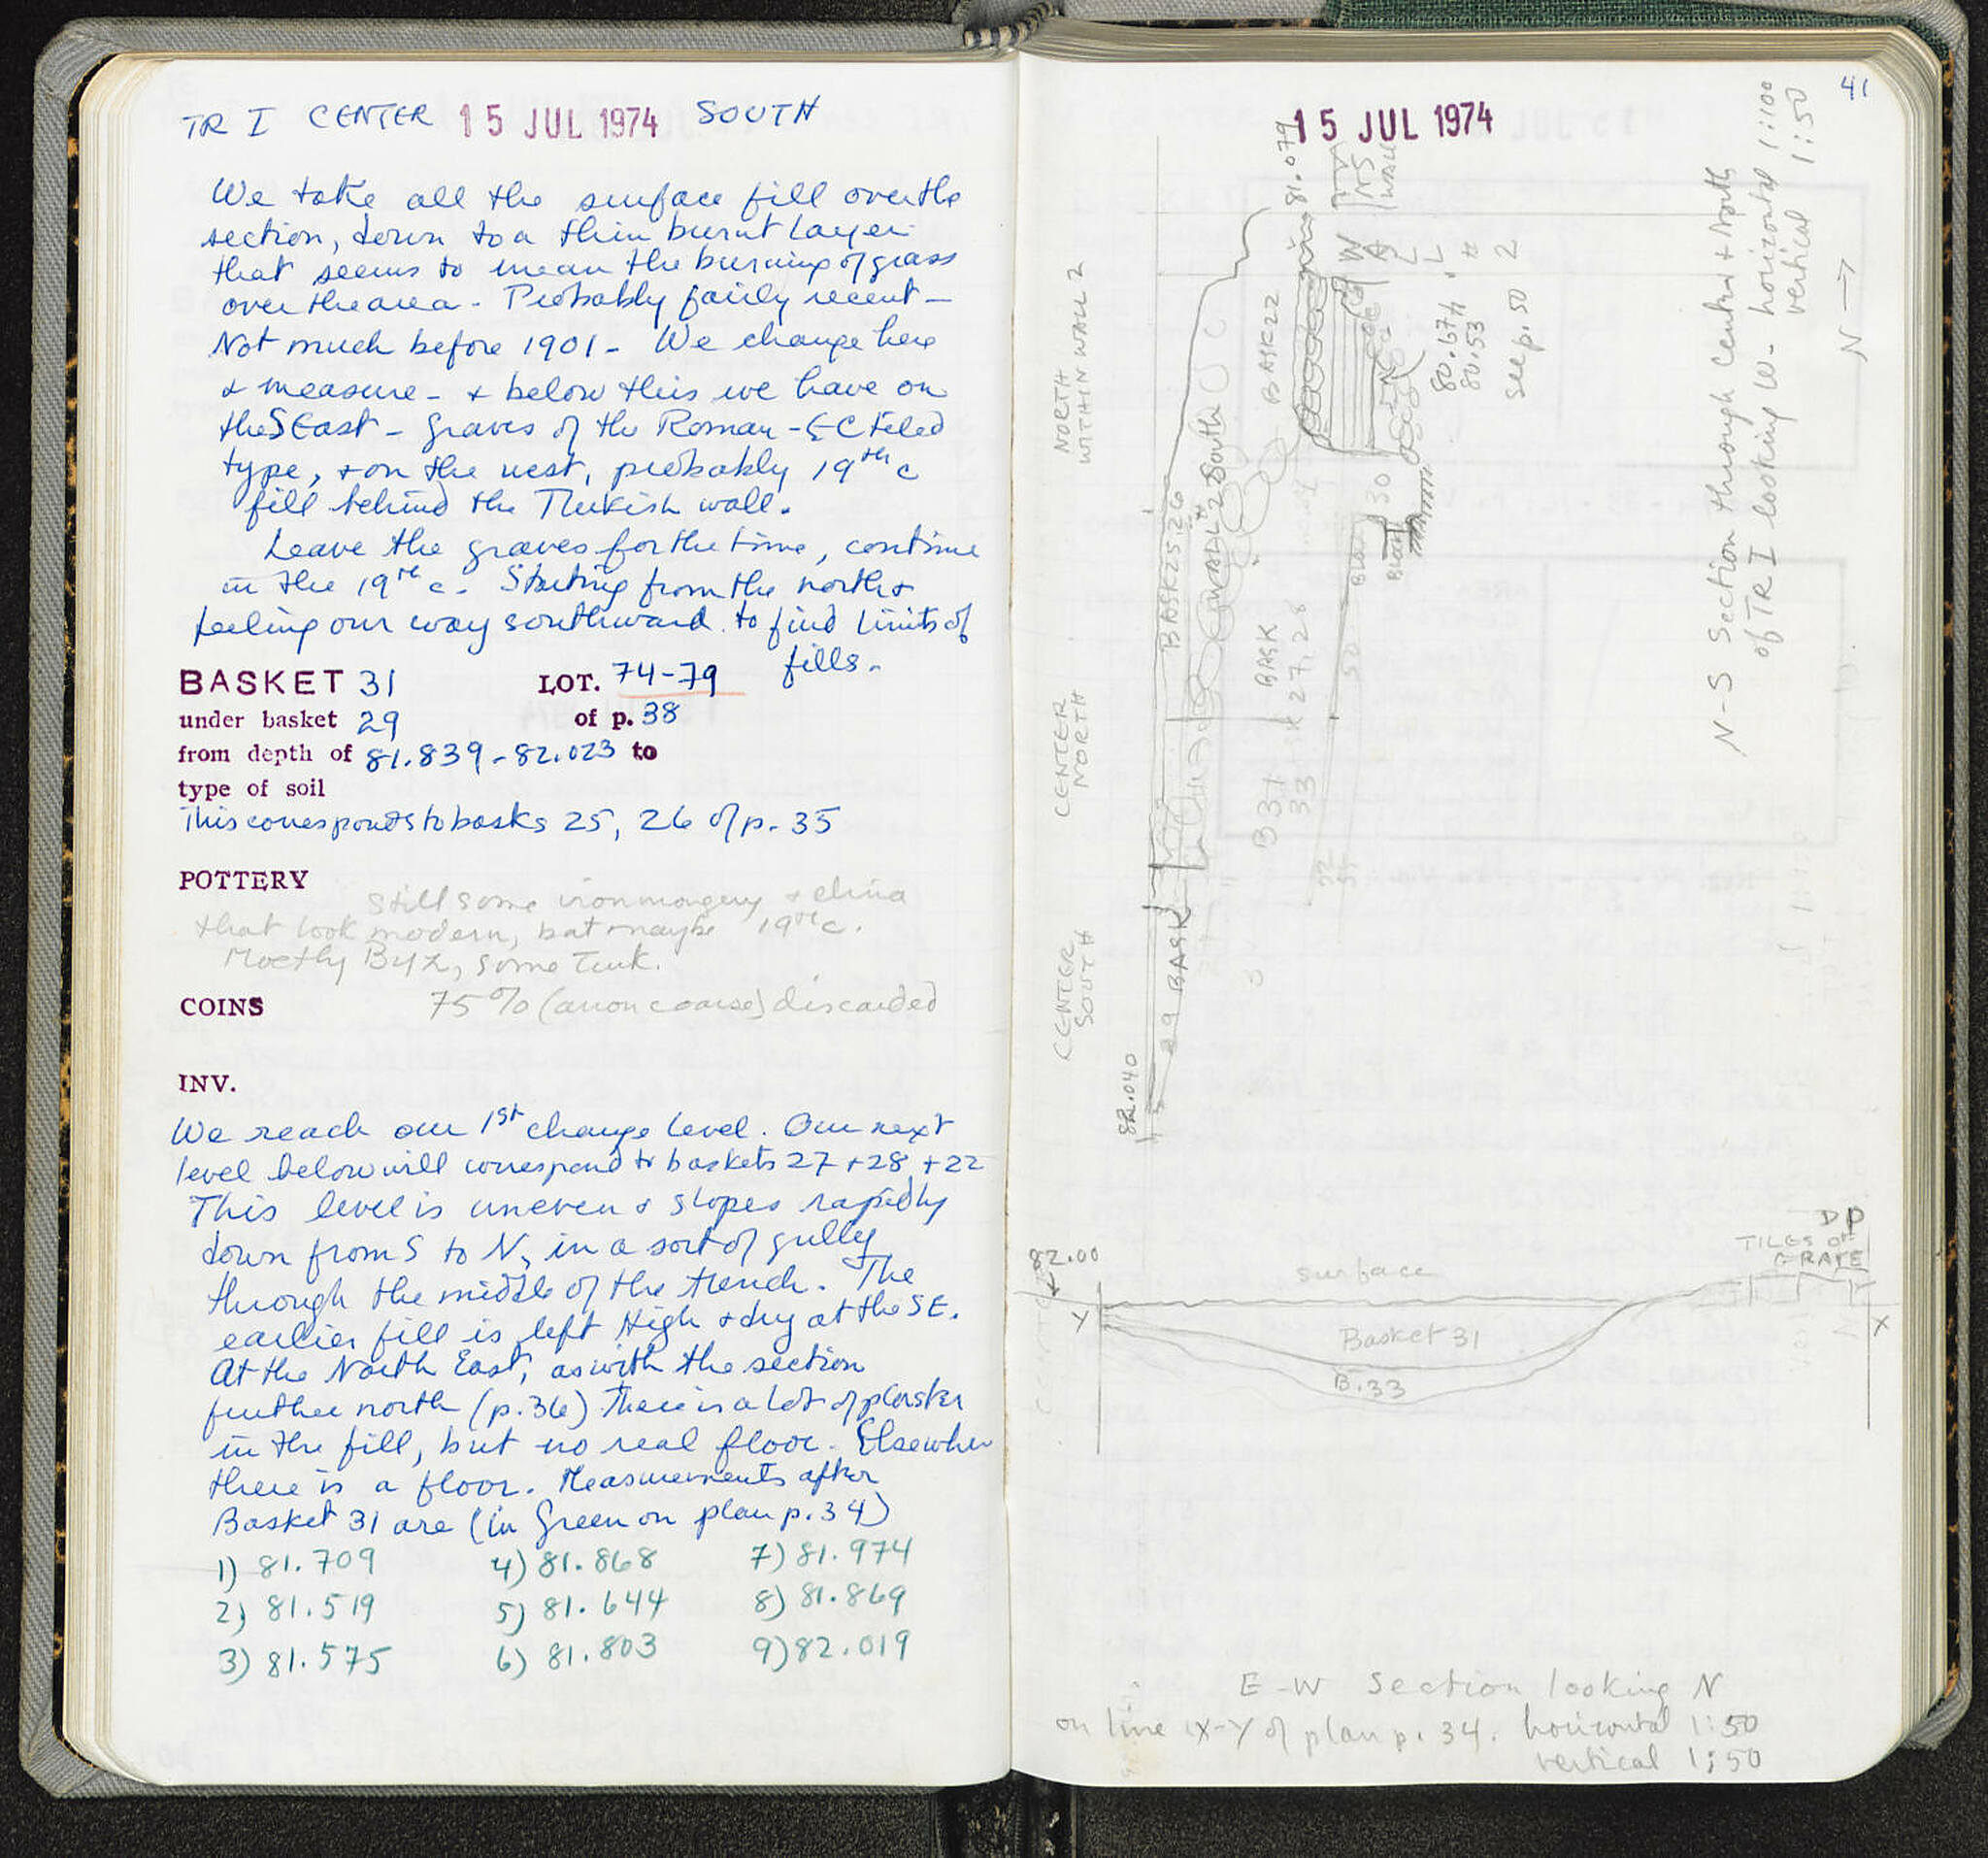 TR I CENTER 15 JUL 1974 SOUTH
We take all the surface fill over the
section, down to a thin burnt layer
that seems to mean the burning of grass
over the area - Probably fairly recent -
Not much before 1901 - We change here
& measure - & below this we have on
the S East - graves of the Roman - tiled
type, & on the west, probably 19th c
fill behind the Turkish wall.
Leave the graves for the time, continue
in the 19th c. Starting from the north &
feeling our way southward to find limits of
fills.
BASKET 31 LOT. 74-79
under basket 29 of p. 38
from depth of 81.839 - 82.023 to
type of soil
This corresponds to basks 25, 26 of p. 35
POTTERY
Still some ironmongery & china
that look modern, but maybe 19th c.
Mostly Byz, some Turk.
COINS 75% (common coarse) discarded
INV.
We reach our 1st change level. Our next
level below will correspond to baskets 27 + 28, + 22
This level is uneven & slopes rapidly
down from S to N, in a sort of gully
through the middle of the trench. The
earlier fill is left high & dry at the SE.
At the North East, as with the section
further north (p. 36) there is a lot of plaster
in the fill, but no real floor. Elsewher
there is a floor. Measurements after
Basket 31 are (in Green on plan p. 34)
1) 81.709 4) 81.868 7) 81.974
2) 81.519 5) 81.644 8) 81.869
3) 81.575 6) 81.803 9) 82.019
41
15 JUL 1974
N-S Section through Center & North
of TR I looking W - horizontal 1:100
vertical 1:50
N →
NORTH
WITHIN WALL 2
CENTER
NORTH
CENTER
SOUTH
81.079
NS
WALL
WALL
# 2
80.53
see p. 50
BASK 22
BASK 25, 26
WALL 2 South
BASK
27, 28
30
50
B 31
33
BASK
82.040
82.00
surface
DP
TILES OF
GRAVE
Y
X
Basket 31
B. 33
E-W Section looking N
on line X-Y of plan p. 34. horizontal 1:50
vertical 1:50